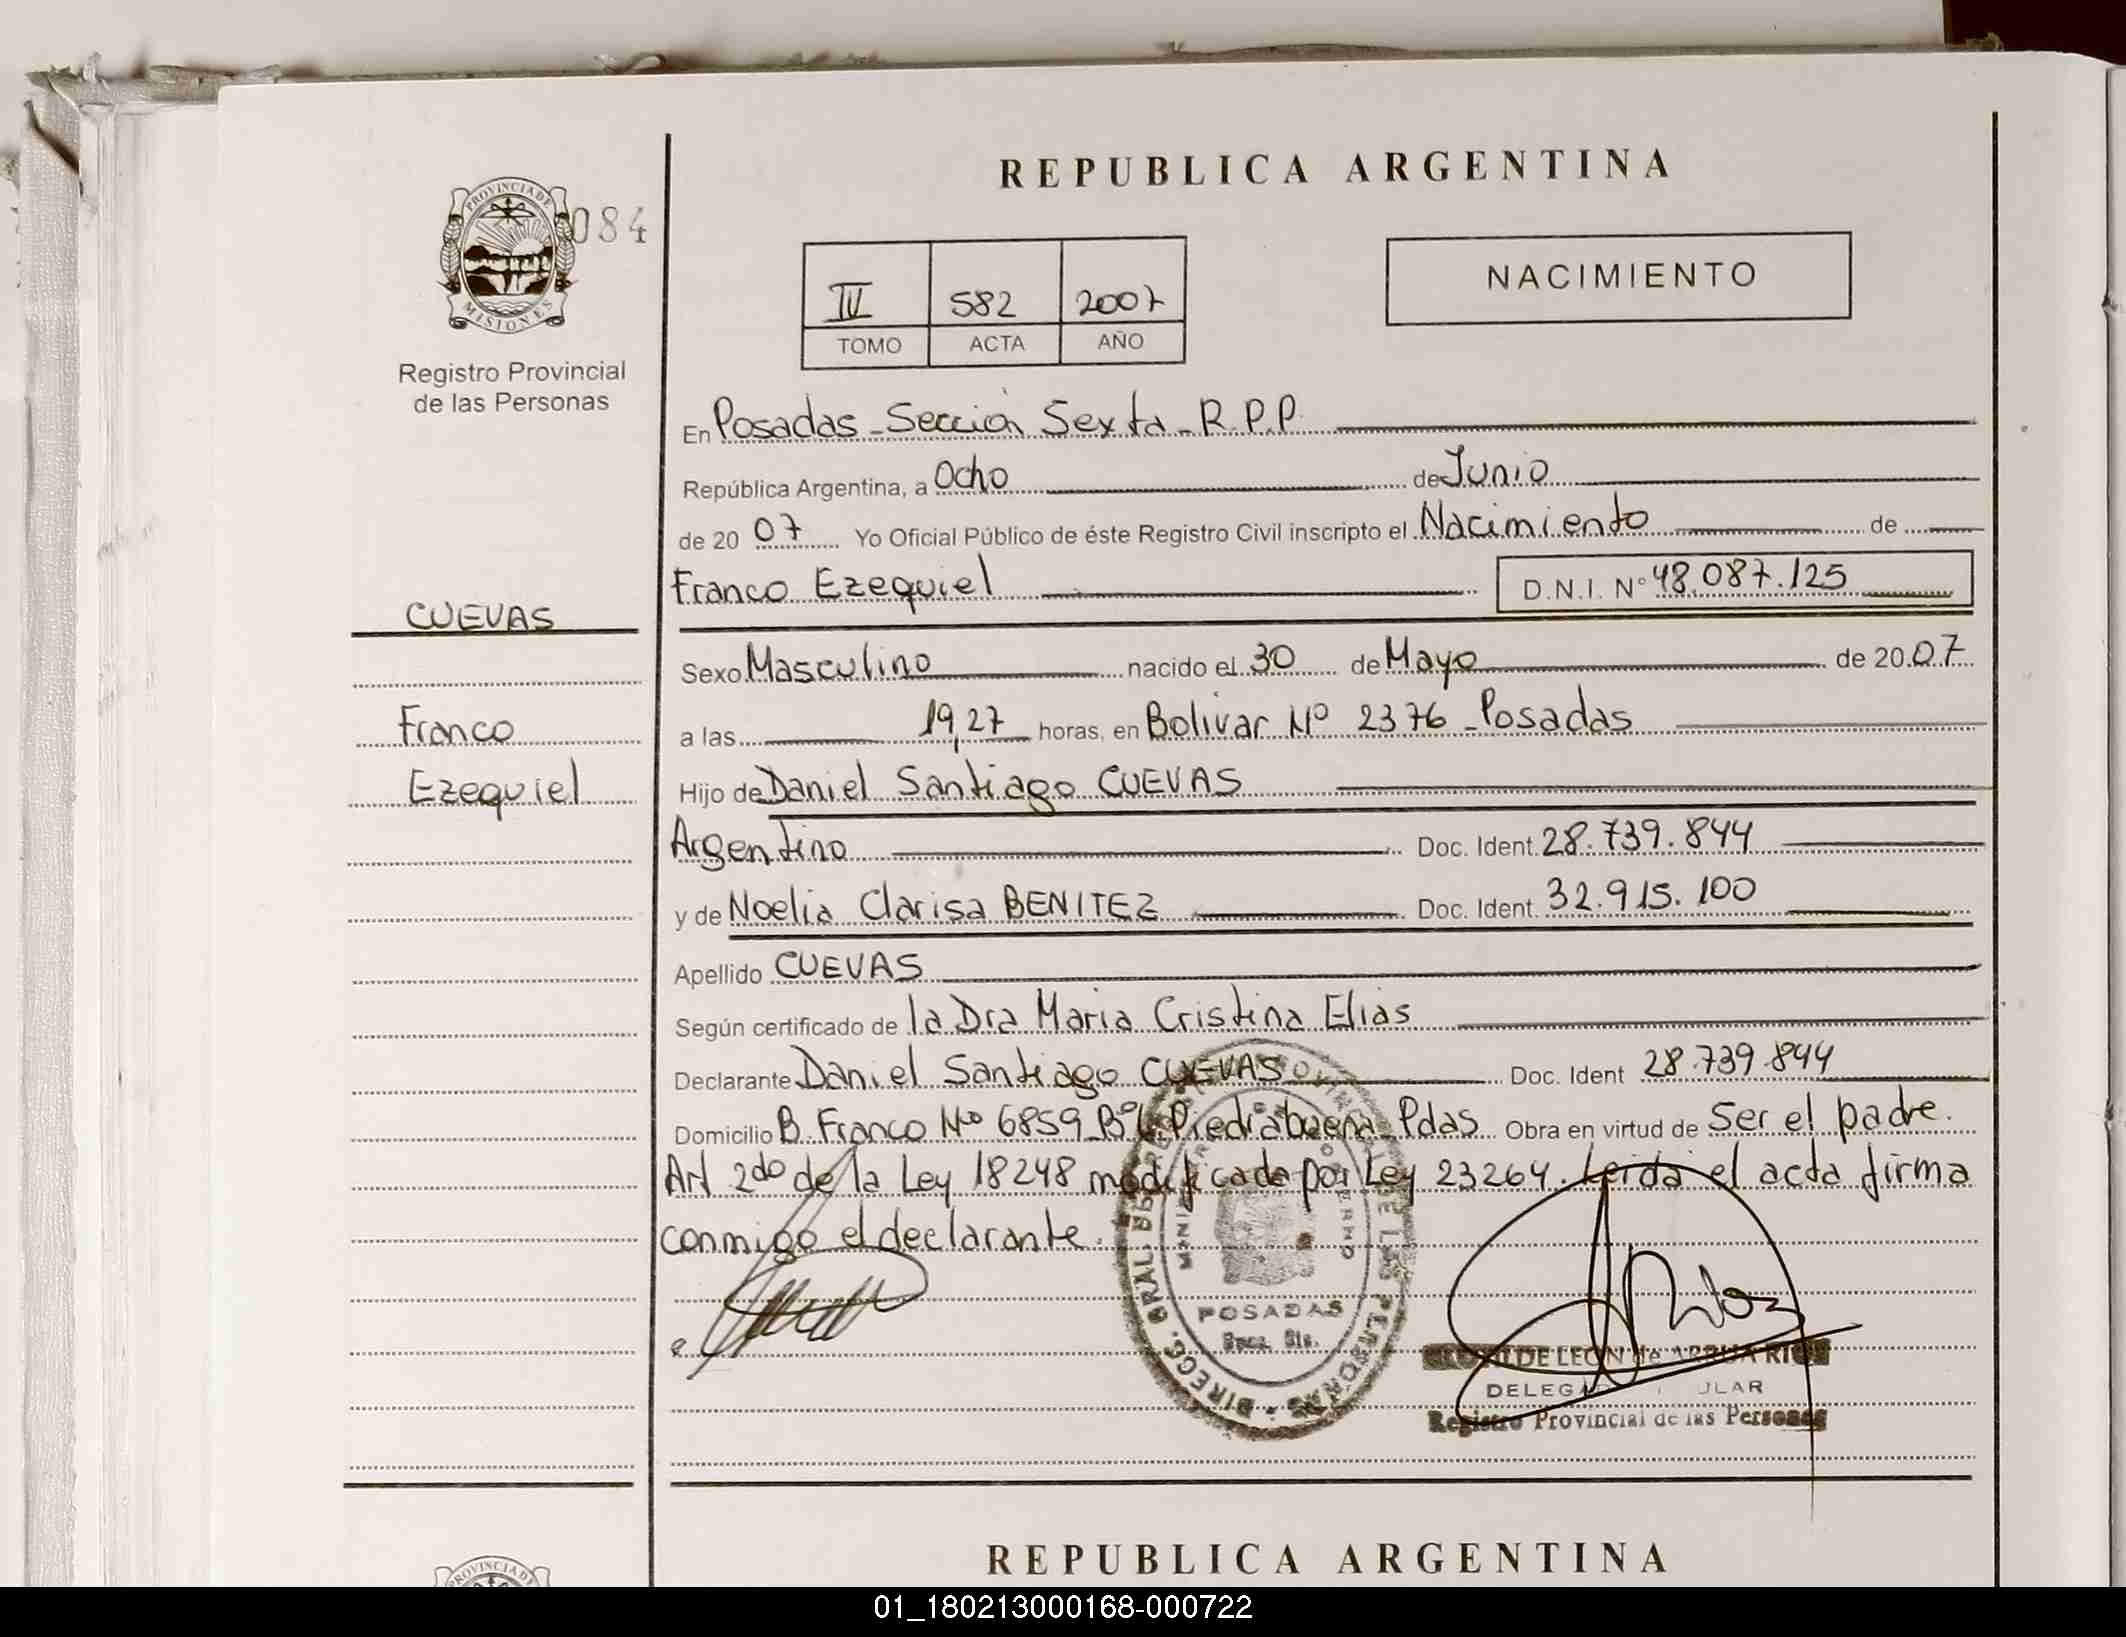 REPUBLICA ARGENTINA
PROVINCIA DE
MISIONES
084
Registro Provincial
de las Personas
IV 582 2007
TOMO ACTA AÑO
NACIMIENTO
En Posadas - Sección Sexta - R.P.P.
República Argentina, a Ocho de Junio
de 20 07 Yo Oficial Público de éste Registro Civil inscripto el Nacimiento de
Franco Ezequiel D.N.I. N° 48.087.125
CUEVAS
Franco
Ezequiel
Sexo Masculino nacido el 30 de Mayo de 20 07
a las 19,27 horas, en Bolivar Nº 2376 - Posadas
Hijo de Daniel Santiago CUEVAS
Argentino Doc. Ident. 28.739.844
y de Noelia Clarisa BENITEZ Doc. Ident. 32.915.100
Apellido CUEVAS
Según certificado de la Dra Maria Cristina Elias
Declarante Daniel Santiago CUEVAS Doc. Ident 28.739.844
Domicilio B. Franco Nº 6859 Bº Piedrabuena Pdas Obra en virtud de Ser el padre.
Art 2do de la Ley 18248 modificada por Ley 23264. Leida el acta firma
conmigo el declarante.
DIRECC. GRAL. DE LAS PERSONAS
POSADAS
DE LEON de ARRUA RIOS
DELEGADA TITULAR
Registro Provincial de las Personas
REPUBLICA ARGENTINA
PROVINCIA DE
01_180213000168-000722